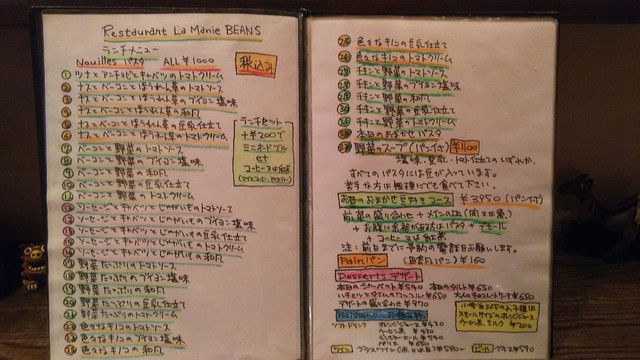 Restaurant La Manie BEANS
ランチメニュー
Nouilles パスタ ALL ¥1000
税込み
① ツナとアンチョビとキャベツのトマトクリーム
② ナスとベーコンとほうれん草のトマトソース
③ ナスとベーコンとほうれん草のブイヨン塩味
④ ナスとベーコンとほうれん草の和風
⑤ ナスとベーコンとほうれん草の豆乳仕立て
⑥ ナスとベーコンとほうれん草のトマトクリーム
⑦ ベーコンと野菜のトマトソース
⑧ ベーコンと野菜のブイヨン塩味
⑨ ベーコンと野菜の和風
⑩ ベーコンと野菜の豆乳仕立て
⑪ ベーコンと野菜のトマトクリーム
⑫ ソーセージとキャベツとじゃがいものトマトソース
⑬ ソーセージとキャベツとじゃがいものブイヨン塩味
⑭ ソーセージとキャベツとじゃがいもの豆乳仕立て
⑮ ソーセージとキャベツとじゃがいものトマトクリーム
⑯ ソーセージとキャベツとじゃがいもの和風
⑰ 野菜たっぷりのトマトソース
⑱ 野菜たっぷりのブイヨン塩味
⑲ 野菜たっぷりの和風
⑳ 野菜たっぷりの豆乳仕立て
㉑ 野菜たっぷりのトマトクリーム
㉒ 色々なキノコのトマトソース
㉓ 色々なキノコのブイヨン塩味
㉔ 色々なキノコの和風
ランチセット
+¥200で
ミニオードブル
コーヒー又は紅茶
㉕ 色々なキノコの豆乳仕立て
㉖ 色々なキノコのトマトクリーム
㉗ チキンと野菜のトマトソース
㉘ チキンと野菜のブイヨン塩味
㉙ チキンと野菜の和風
㉚ チキンと野菜の豆乳仕立て
㉛ チキンと野菜のトマトクリーム
㉜ 本日のおまかせパスタ
㉝ 野菜のスープ(パン付) ¥1100
塩味、豆乳、トマト仕立てのいずれか。
すべてのパスタには豆が入っています。
苦手な方は無理にでも食べて下さい。
お昼のおまかせ豆料理コース ¥3950(パン付)
前菜の盛り合せ+メインの皿(肉又は魚)
+お腹に余裕がある方はパスタ+デセール
+コーヒー又は紅茶
注:前日までに予約の電話をお願いします。
Pain パン (自家製パン) ¥160
Desserts デザート
本日のシャーベット ¥540 本日のタルト ¥650
デザートの盛り合せ ¥970
ソフトドリンク オレンジジュース ¥430
コーラ ¥430
ジンジャエール ¥430
ワイン
ビール